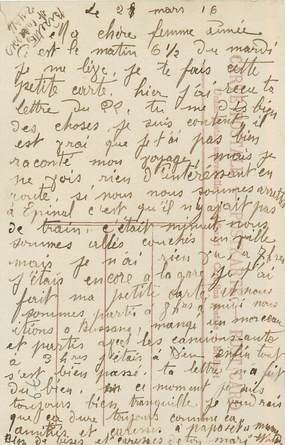 Le 28 mars 16
Ma chère femme aimée
C'est le matin 6 ½ du mardi
je me lève, je te fais cette
petite carte, hier j'ai reçu ta
lettre du 22, tu me dis bien
des choses je suis content, il
est vrai que je t'ai pas bien
raconté mon voyage, mais je
ne vois rien d'intéressant en
route, si nous nous sommes arrêtés
à Épinal c'est qu'il n'y avait pas
de train, c'était minuit, nous
sommes allés couchés en ville
mais je n'ai rien vu à 7 hres
j'étais encore à la gare je t'ai
fait ma petite carte, et nous
sommes parti à 8 hres, midi nous
étions à Bussang, mangé un morceau
et partis avec les camions auto
à 3 hres j'étais à enfin tout
s'est bien passé. ta lettre m'a fait
du bien, en ce moment je suis
toujours bien tranquille je voudrais
que ça dur toujours comme ça
amitiés et caresses à papa et maman
bien de bises et caresses de ton mari